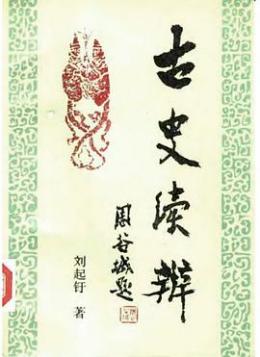 古史续辨
周谷城题
刘起釪 著